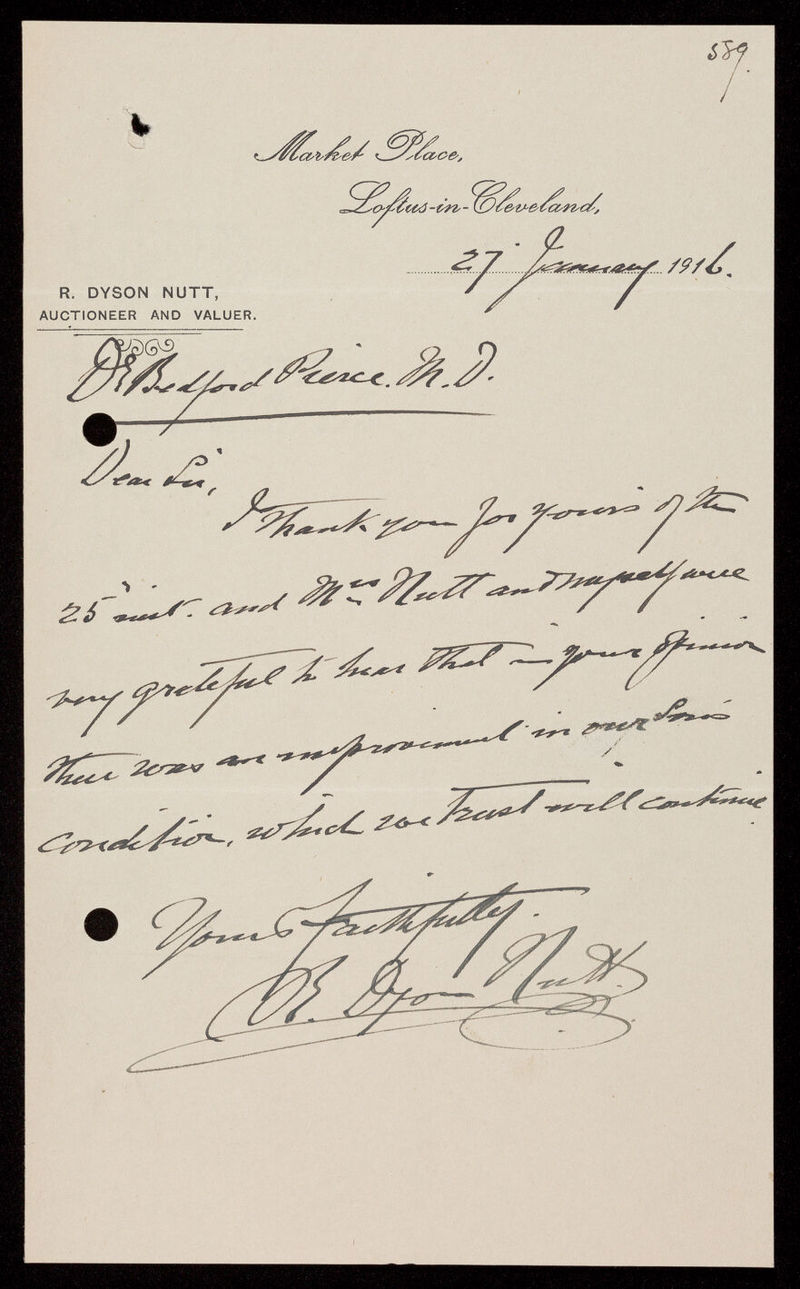 589.
Market Place,
Loftus-in-Cleveland,
27 January 1916.
R. DYSON NUTT,
AUCTIONEER AND VALUER.
Dr Bedford Pierce. M.D.
Dear Sir,
I thank you for yours of the
25" inst. and Mrs Nutt and myself were
very grateful to hear that in your opinion
there was an improvement in our Son's
condition, which we trust will continue.
Yours faithfully.
R. Dyson Nutt.